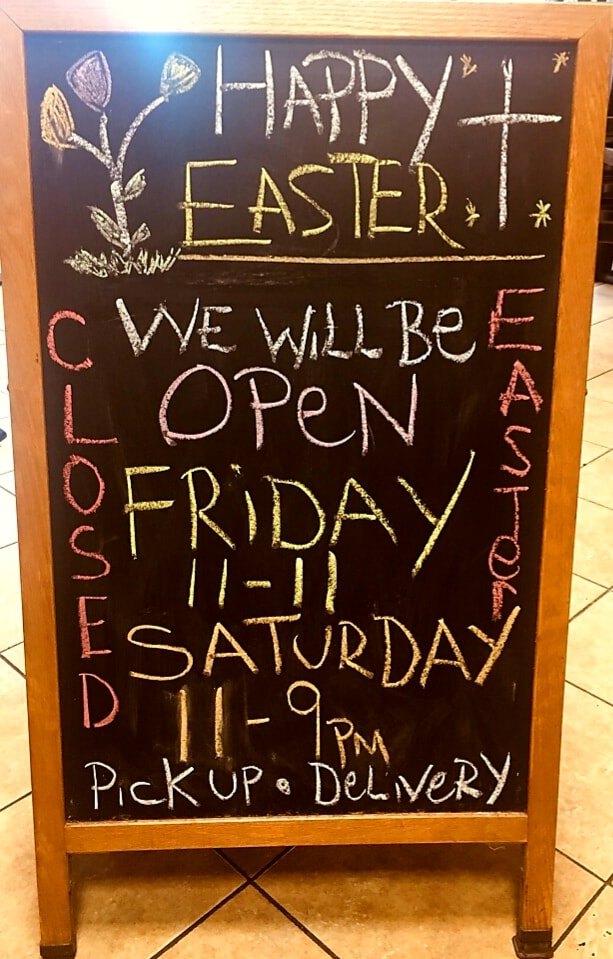 HAPPY
EASTER
WE WiLL Be
OPeN
FRiDAY
11-11
SATURDAY
11-9PM
PicK UP • DeLiVeRY
CLOSED
EASTer